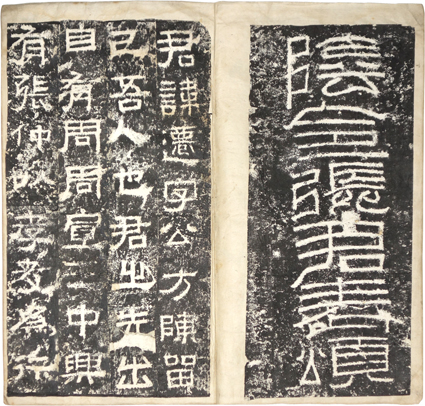 陰令張君表頌
君諱遷字公方陳留
己吾人也君之先出
自有周周宣王中興
有張仲以孝友為行